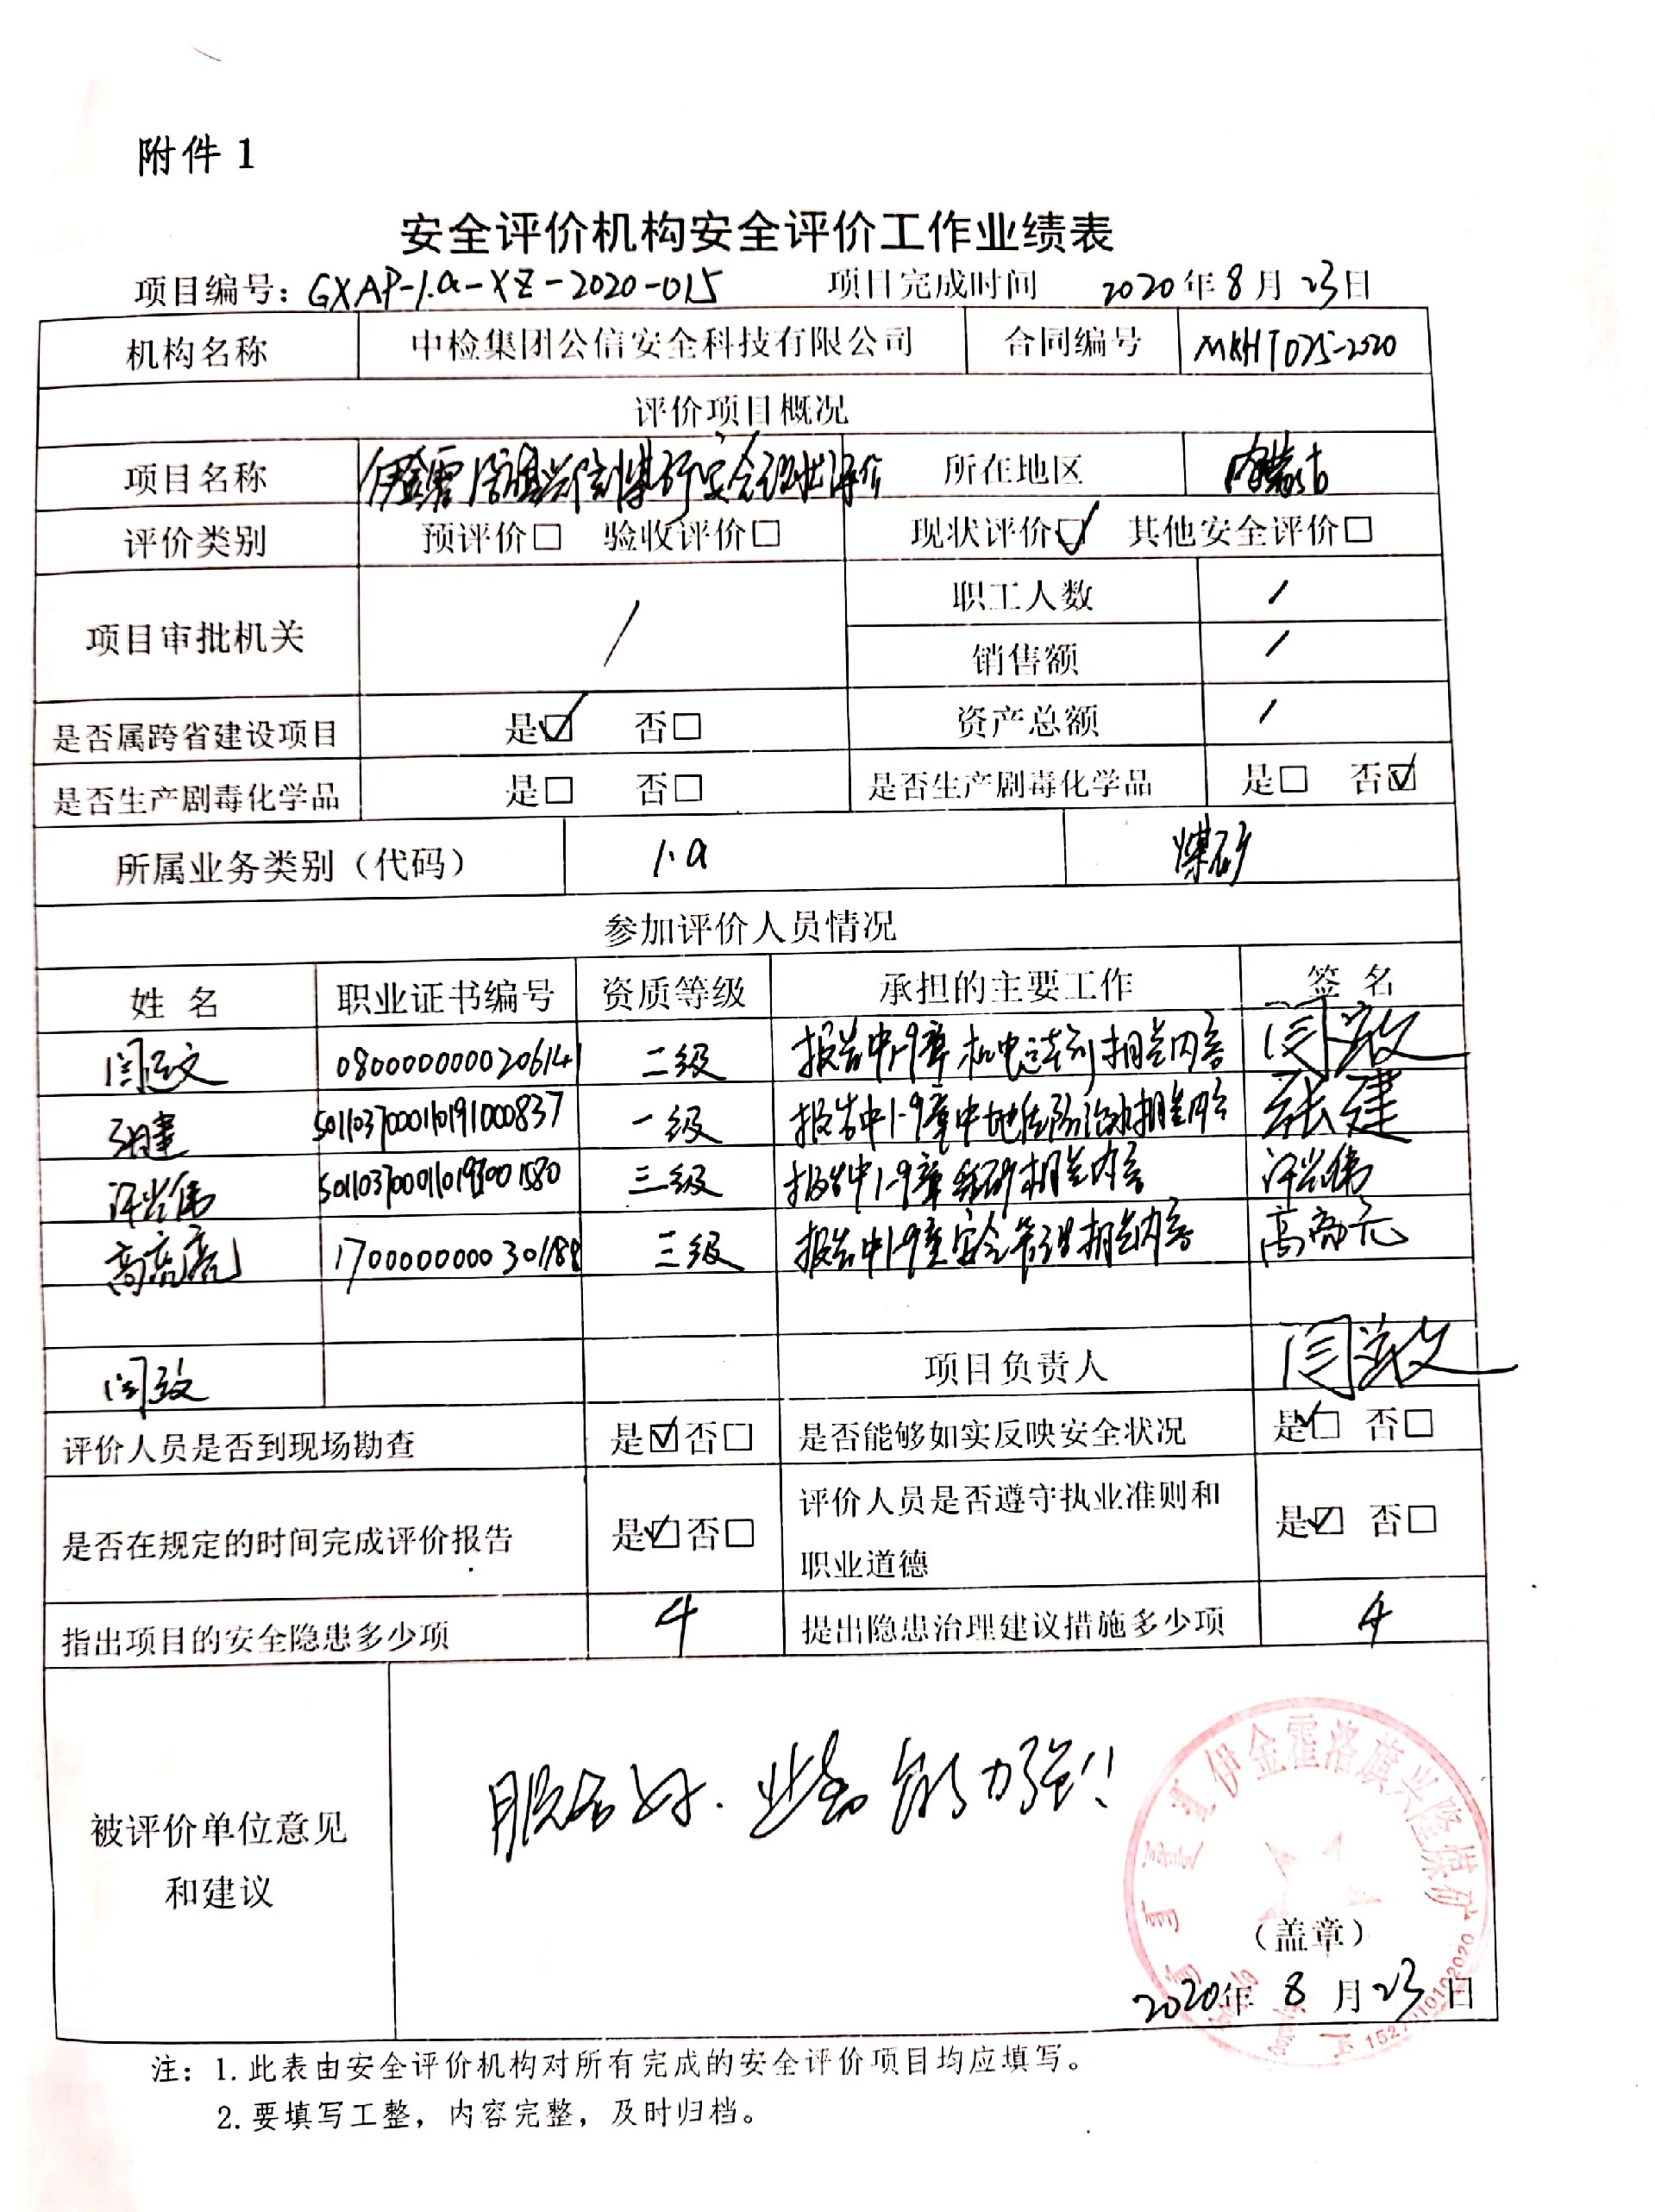 附件 1
安全评价机构安全评价工作业绩表
项目编号：GXAP-1.a-XZ-2020-015 项目完成时间 2020年8月23日
机构名称 中检集团公信安全科技有限公司 合同编号 MKHT075-2020
评价项目概况
项目名称 安全现状评价 所在地区 内蒙古
评价类别 预评价□ 验收评价□ 现状评价☑ 其他安全评价□
项目审批机关 / 职工人数 /
销售额 /
是否属跨省建设项目 是☑ 否□ 资产总额 /
是否生产剧毒化学品 是□ 否□ 是否生产剧毒化学品 是□ 否☑
所属业务类别（代码） 1.a 煤矿
参加评价人员情况
姓 名 职业证书编号 资质等级 承担的主要工作 签 名
0800000000020614 二级 报告中1-9章机电运输相关内容
张建 一级 报告中1-9章中地质防治水相关内容 张建
许兴伟 三级 报告中1-9章采矿相关内容 许兴伟
高亮亮 1700000000301188 三级 报告中1-9章安全管理相关内容 高亮亮
项目负责人
评价人员是否到现场勘查 是☑否□ 是否能够如实反映安全状况 是☑ 否□
是否在规定的时间完成评价报告 是☑否□ 评价人员是否遵守执业准则和
职业道德 是☑ 否□
指出项目的安全隐患多少项 4 提出隐患治理建议措施多少项 4
被评价单位意见
和建议
服务好．业务能力强！！
伊金霍洛旗兴隆煤矿
（盖章）
2020年 8 月 23 日
注：1.此表由安全评价机构对所有完成的安全评价项目均应填写。
2.要填写工整，内容完整，及时归档。